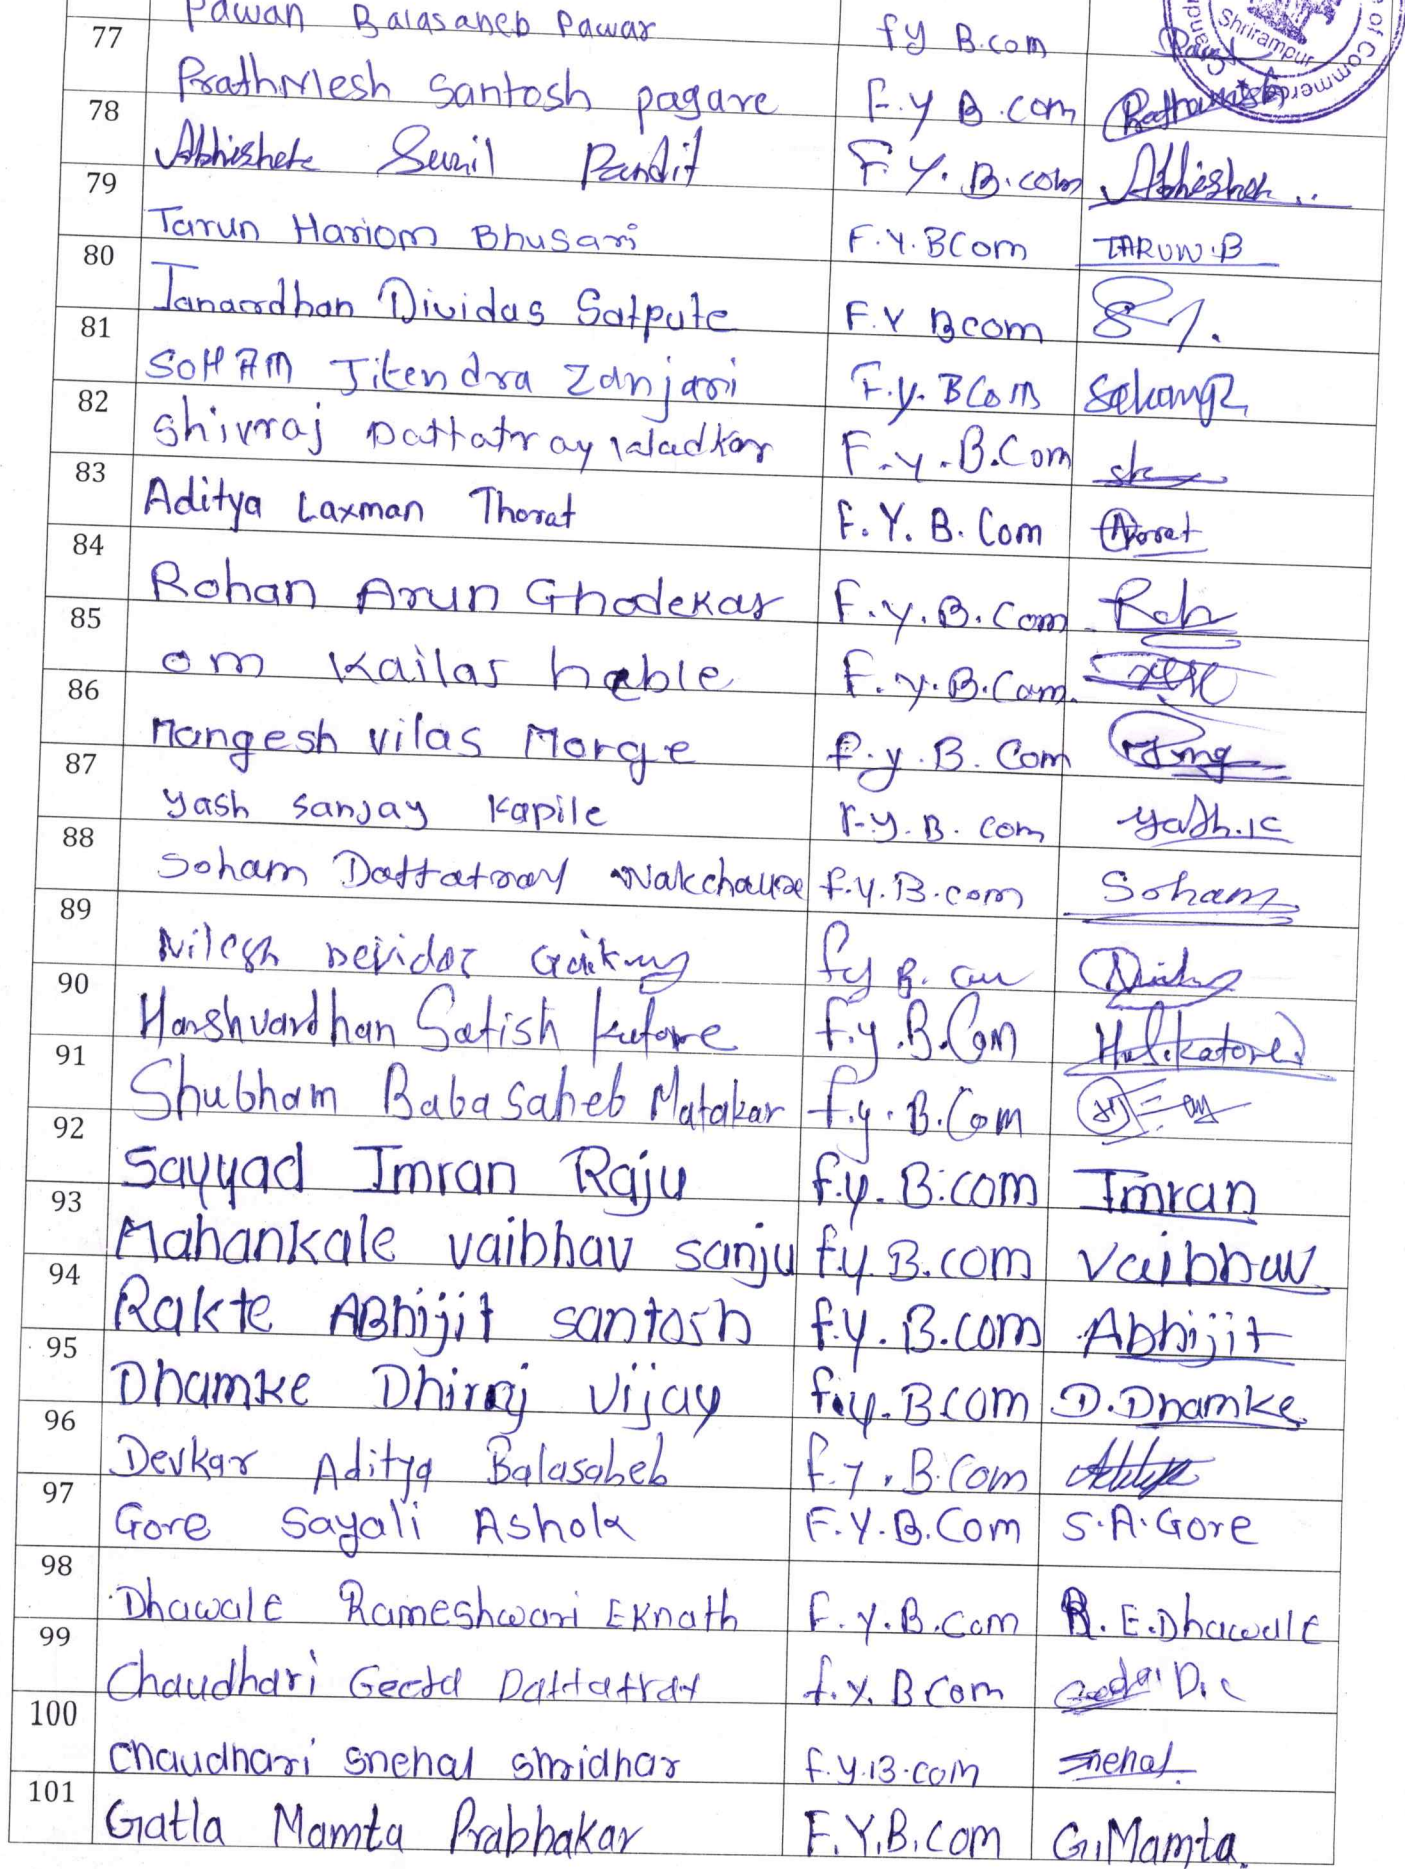 77 Pawan Balasaheb Pawar fy B.com
78 Prathmesh Santosh pagare F.y B.com
79 Abhishek Sunil Pandit F.Y.B.com Abhishek..
80 Tarun Hariom Bhusari F.Y.BCom TARUN.B
81 Janaordhan Dividas Satpute F.Y Bcom
82 SOHAM Jitendra Zanjari F.y.BCom
83 Shivraj Dattatray Wadkar F.y.B.Com
84 Aditya Laxman Thorat F.Y.B.Com
85 Rohan Arun Ghodekar F.y.B.Com Roh
86 om Kailas hable F.y.B.Com.
87 Mangesh vilas Morge f.y.B.Com
88 yash sanjay Kapile F.y.B.com yash.k
89 Soham Dattatray Wakchaure f.y.B.com Soham
90 Nilesh Devidas fy B.
91 Harshvardhan Satish Katore f.y.B.Com H.S.katore
92 Shubham Babasaheb Matakar f.y.B.Com
93 Sayyad Imran Raju f.y.B.com Imran
94 Mahankale vaibhav sanju f.y.B.com vaibhav
95 Rakte ABhijit santosh f.y.B.com Abhijit
96 Dhamke Dhiraj vijay f.y.B.com D.Dhamke
97 Devkar Aditya Balasaheb f.y.B.Com
Gore Sayali Ashok F.Y.B.Com S.A.Gore
98
99 Dhawale Rameshwari Eknath F.Y.B.Com R.E.Dhawale
100 Chaudhari Geeta Dattatray f.y.B Com
chaudhari snehal shridhar f.y.B.com snehal
101 Gatla Mamta Prabhakar F.Y.B.com G.Mamta
of Commerce
Shrirampur